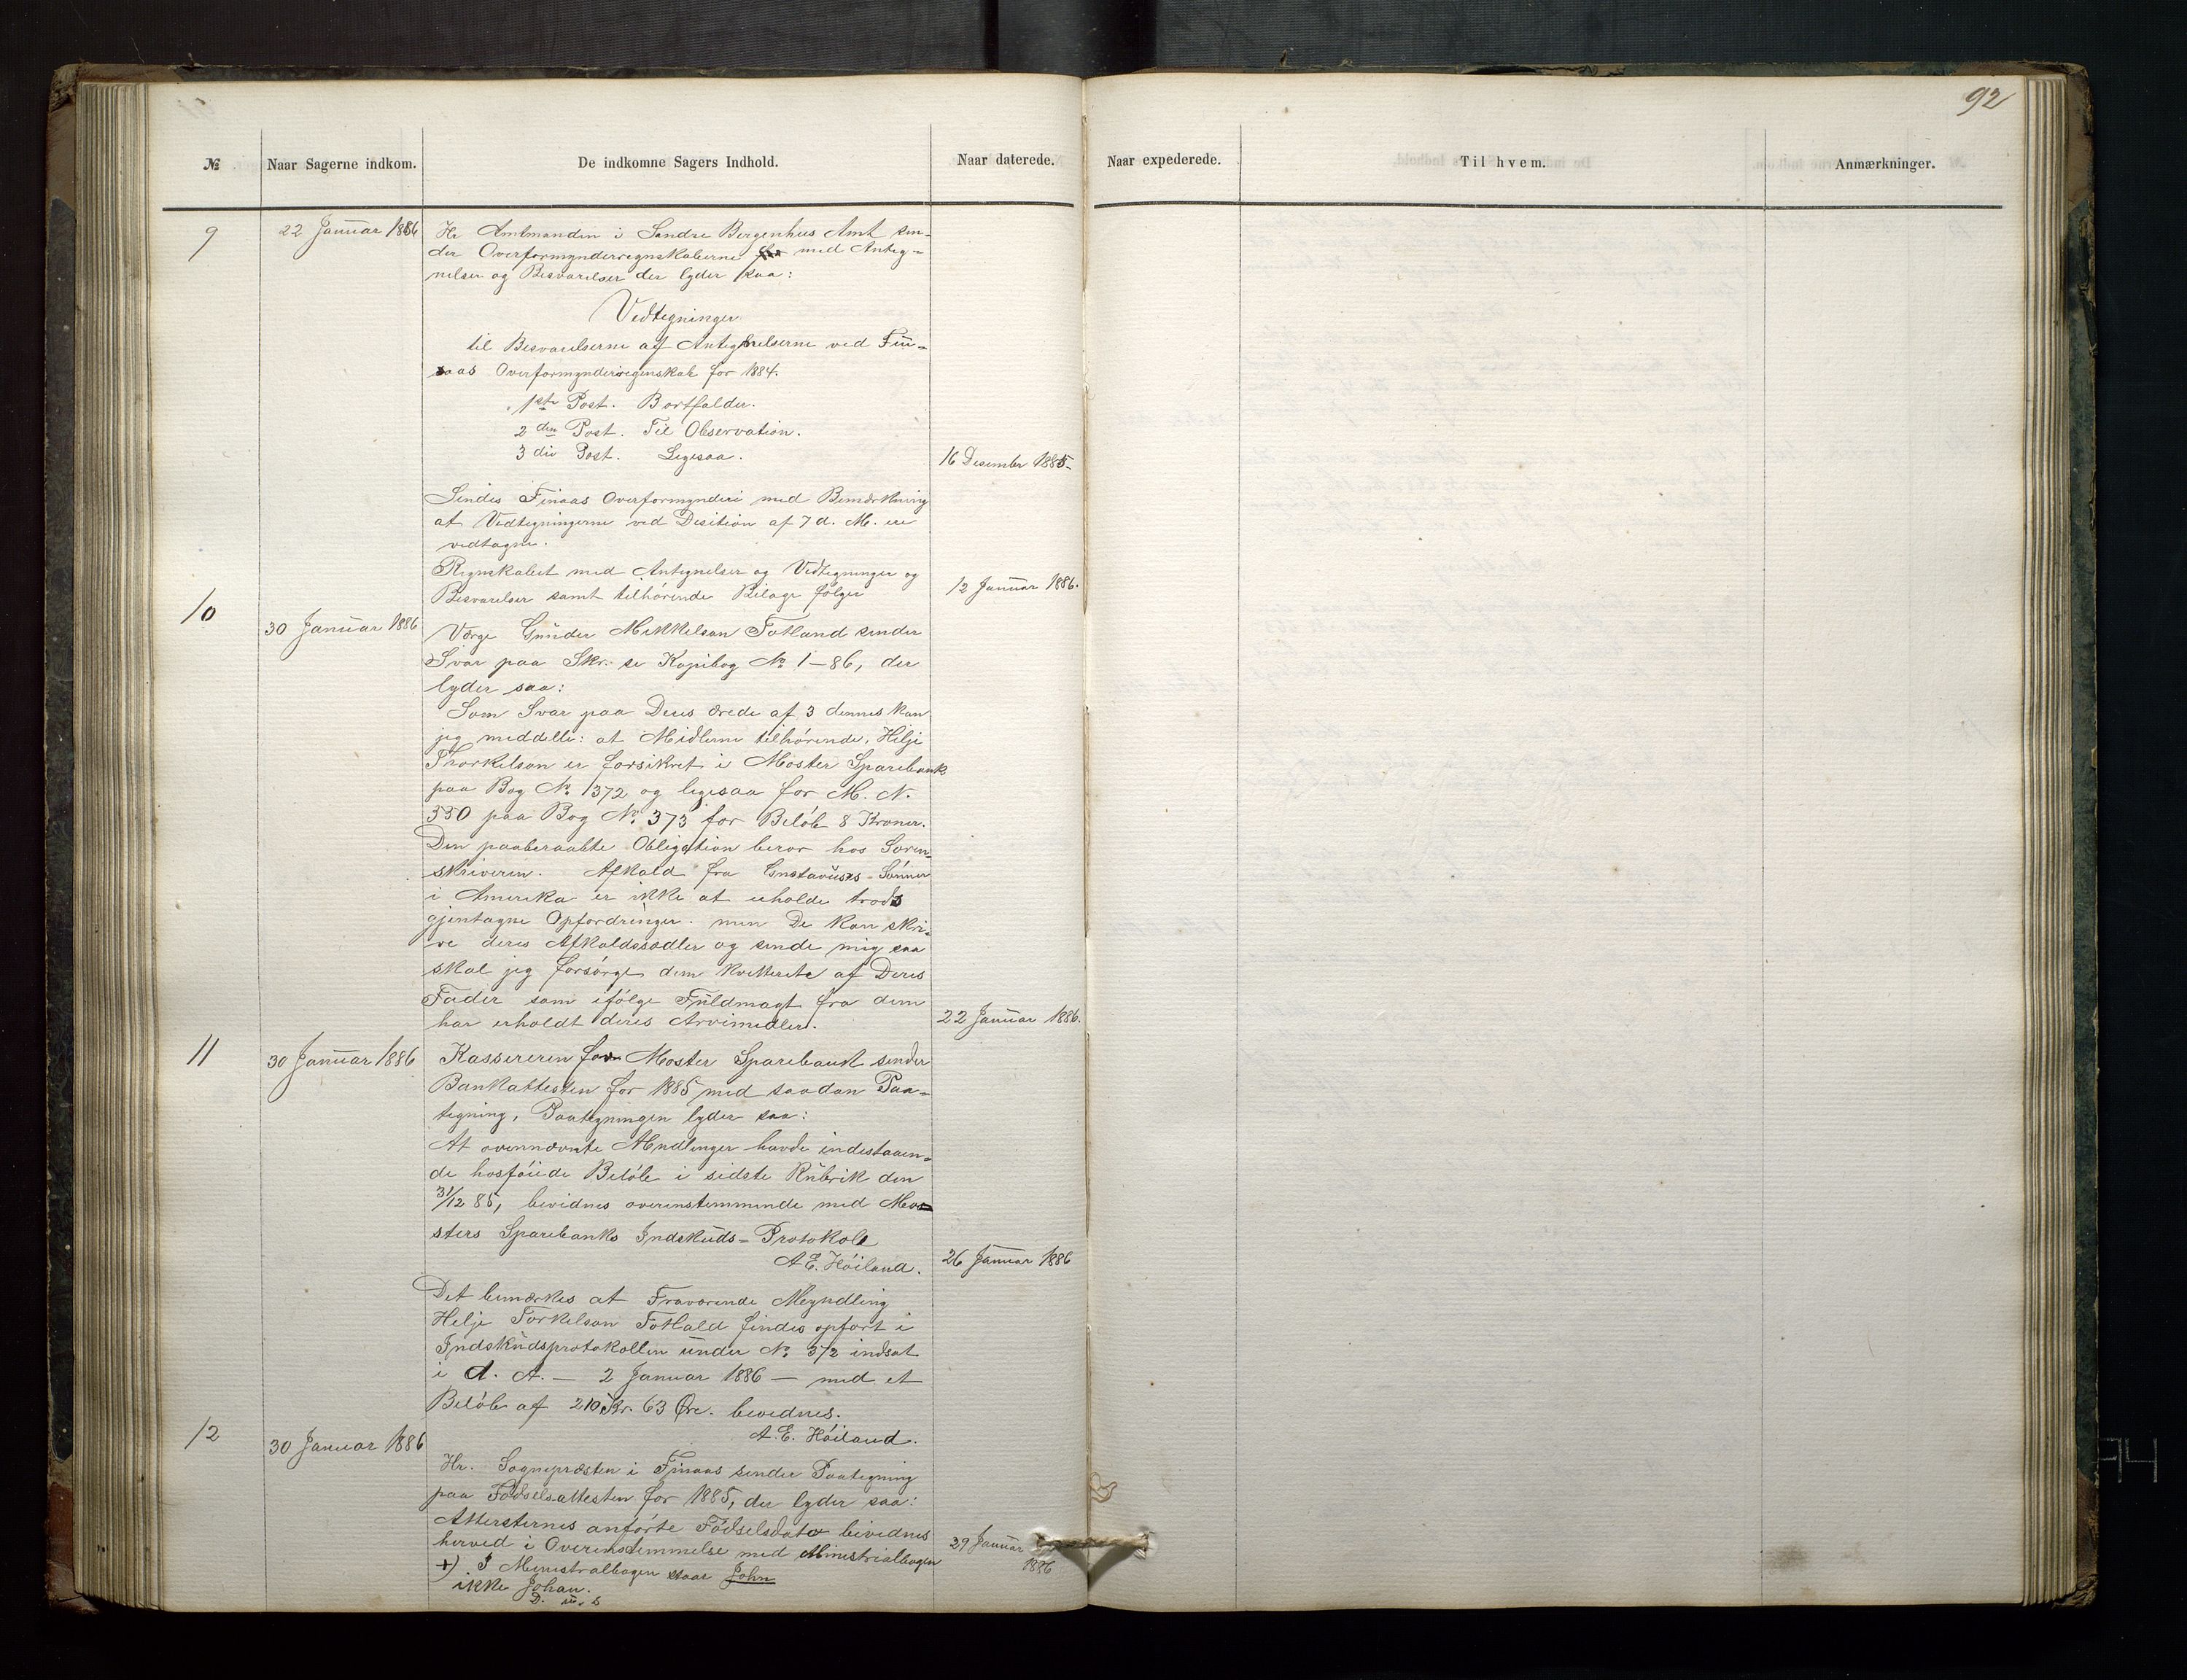 92
№ Naar Sagerne indkom. De indkomne Sagers Indhold. Naar daterede. Naar expederede. Til hvem. Anmærkninger.
9 22 Januar 1886 Hr Amtmanden i Søndre Bergenhus Amt sen-
der Overformynderregnskaberne med Anteg-
nelser og Besvarelser der lyder saa:
Vedtegninger
til Besvarelserne af Antegnelserne ved Fin-
saas Overformynderregenskab for 1884.
1ste Post. Bortfalder.
2den Post. Til Observation.
3die Post. Ligesaa. 16 Desember 1885-
Sendes Finaas Overformynderi med Bemærkning
at Vedtegningerne ved Desition af 7 d. M. ere
vedtagne.
Regnskabet med Antegnelser og Vedtegninger og
Besvarelser samt tilhörende Bilage følger 12 Januar 1886.
10 30 Januar 1886 Værge Gunder Mikkelsan Totland sender
Svar paa Skr. se Kopibog № 1-86, der
lyder saa:
Som Svar paa Deres ærede af 3 dennes kan
jeg meddelle: at Midlerne tilhörende, Helje
Thorkelsan er forsikret i Moster Sparebank
paa Bog № 1372 og ligesaa for M. N.
350 paa Bog № 373 for Belöb 8 Kroner.
Den paaberaabte Obligation beror hos Soren-
skriveren. Afkald fra Gustavuses Sönner
i Amerika er ikke at erholde trods
gjentagne Opfordringer. men De kan skri-
ve deres Afkaldssedler og sende mig saa
skal jeg forsörge dem kvitterite af Deres
Fader som ifölge Fuldmagt fra dem
har erholdt deres Arvimidler. 22 Januar 1886.
11 30 Januar 1886 Kassereren for Moster Sparebank sender
Bankattesten for 1885 med saadan Paa-
tegning, Paategningen lyder saa:
At ovennævnte Mndlinger havde indestaaen-
de hosföiede Belöb i sidste Rubrik den
31/12 85, bevidnes overenstemmende med Mo-
sters Sparebanks Indskuds-Protokole
A E. Höiland. 26 Januar 1886
Det bemærkes at Fraværende Meyndling
Helje Torkelsan Totlald findes opfört i
Indskudsprotokollen under № 372 indsat
i d. A. — 2 Januar 1886 — med et
Belöb af 210 Kr. 63 Øre. bevednes.
A. E. Höiland.
12 30 Januar 1886
Hr. Sognepræsten i Finaas sender Paategning
paa Fødselsattesten for 1885, der lyder saa:
Attersternes anförte Födselsdato bevidnes
herved i Overenstemmelse med Ministrialbogen 29 Januar
+) I Menistralbogen staar John 1886
ikke Johan.
D. u. s